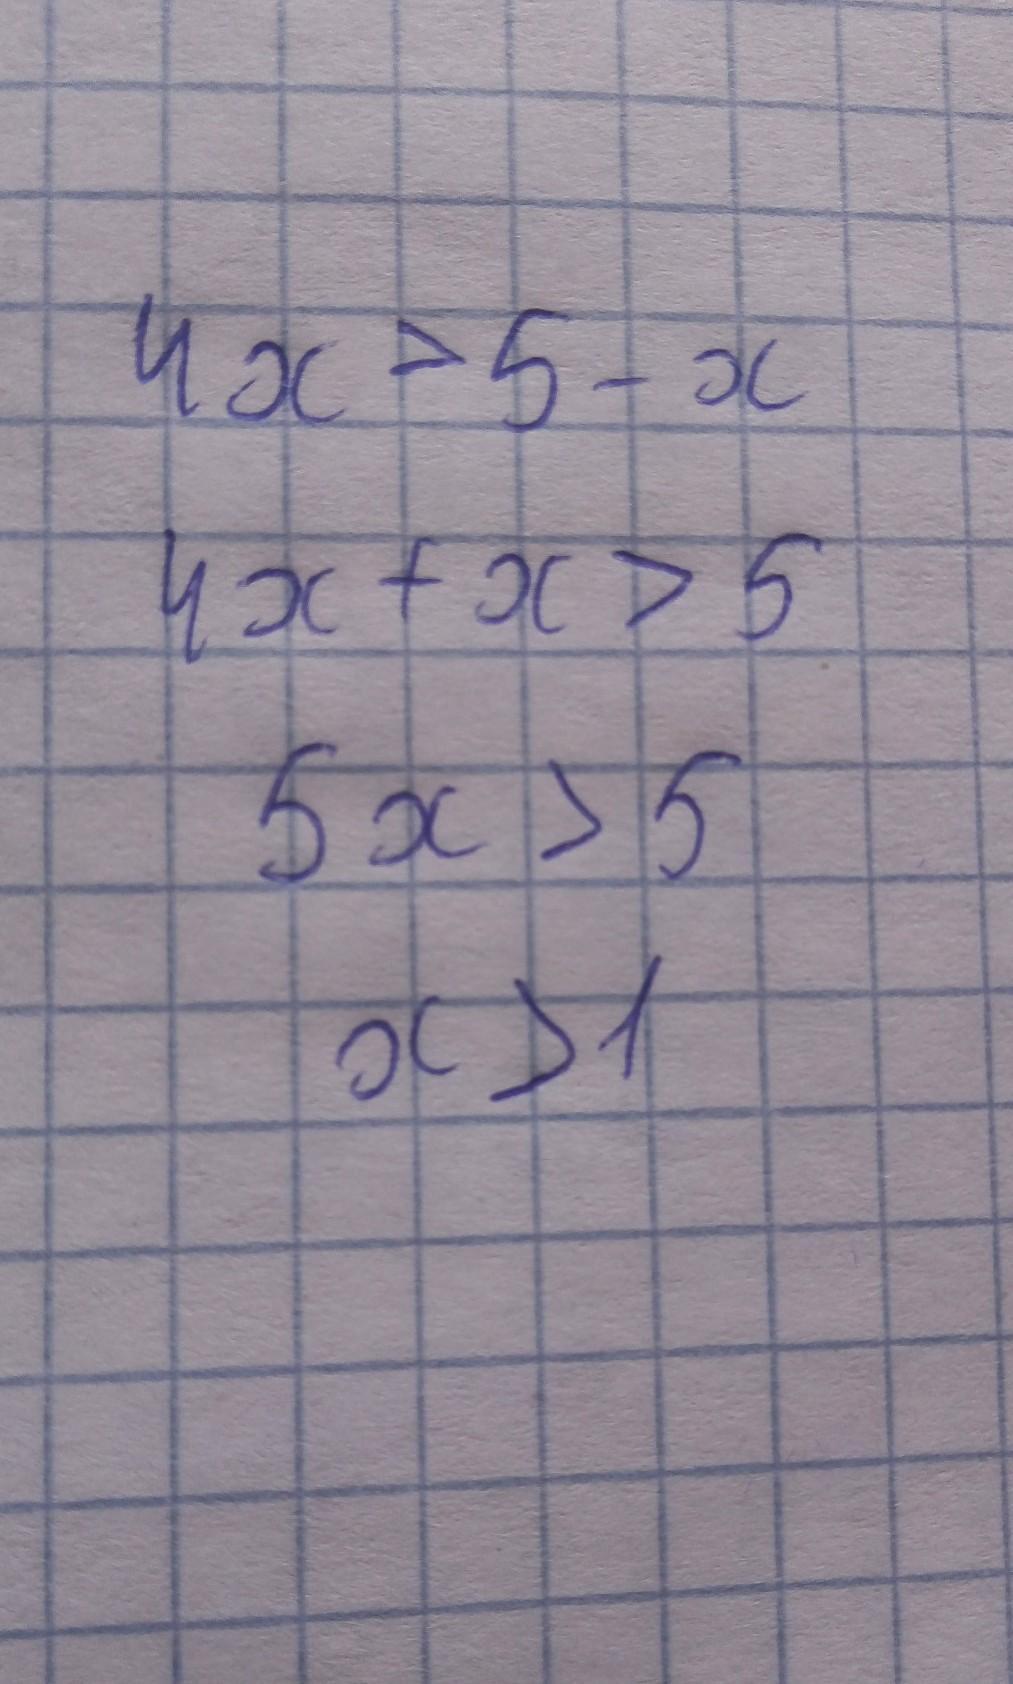 4x > 5 - x
4x + x > 5
5x > 5
x > 1